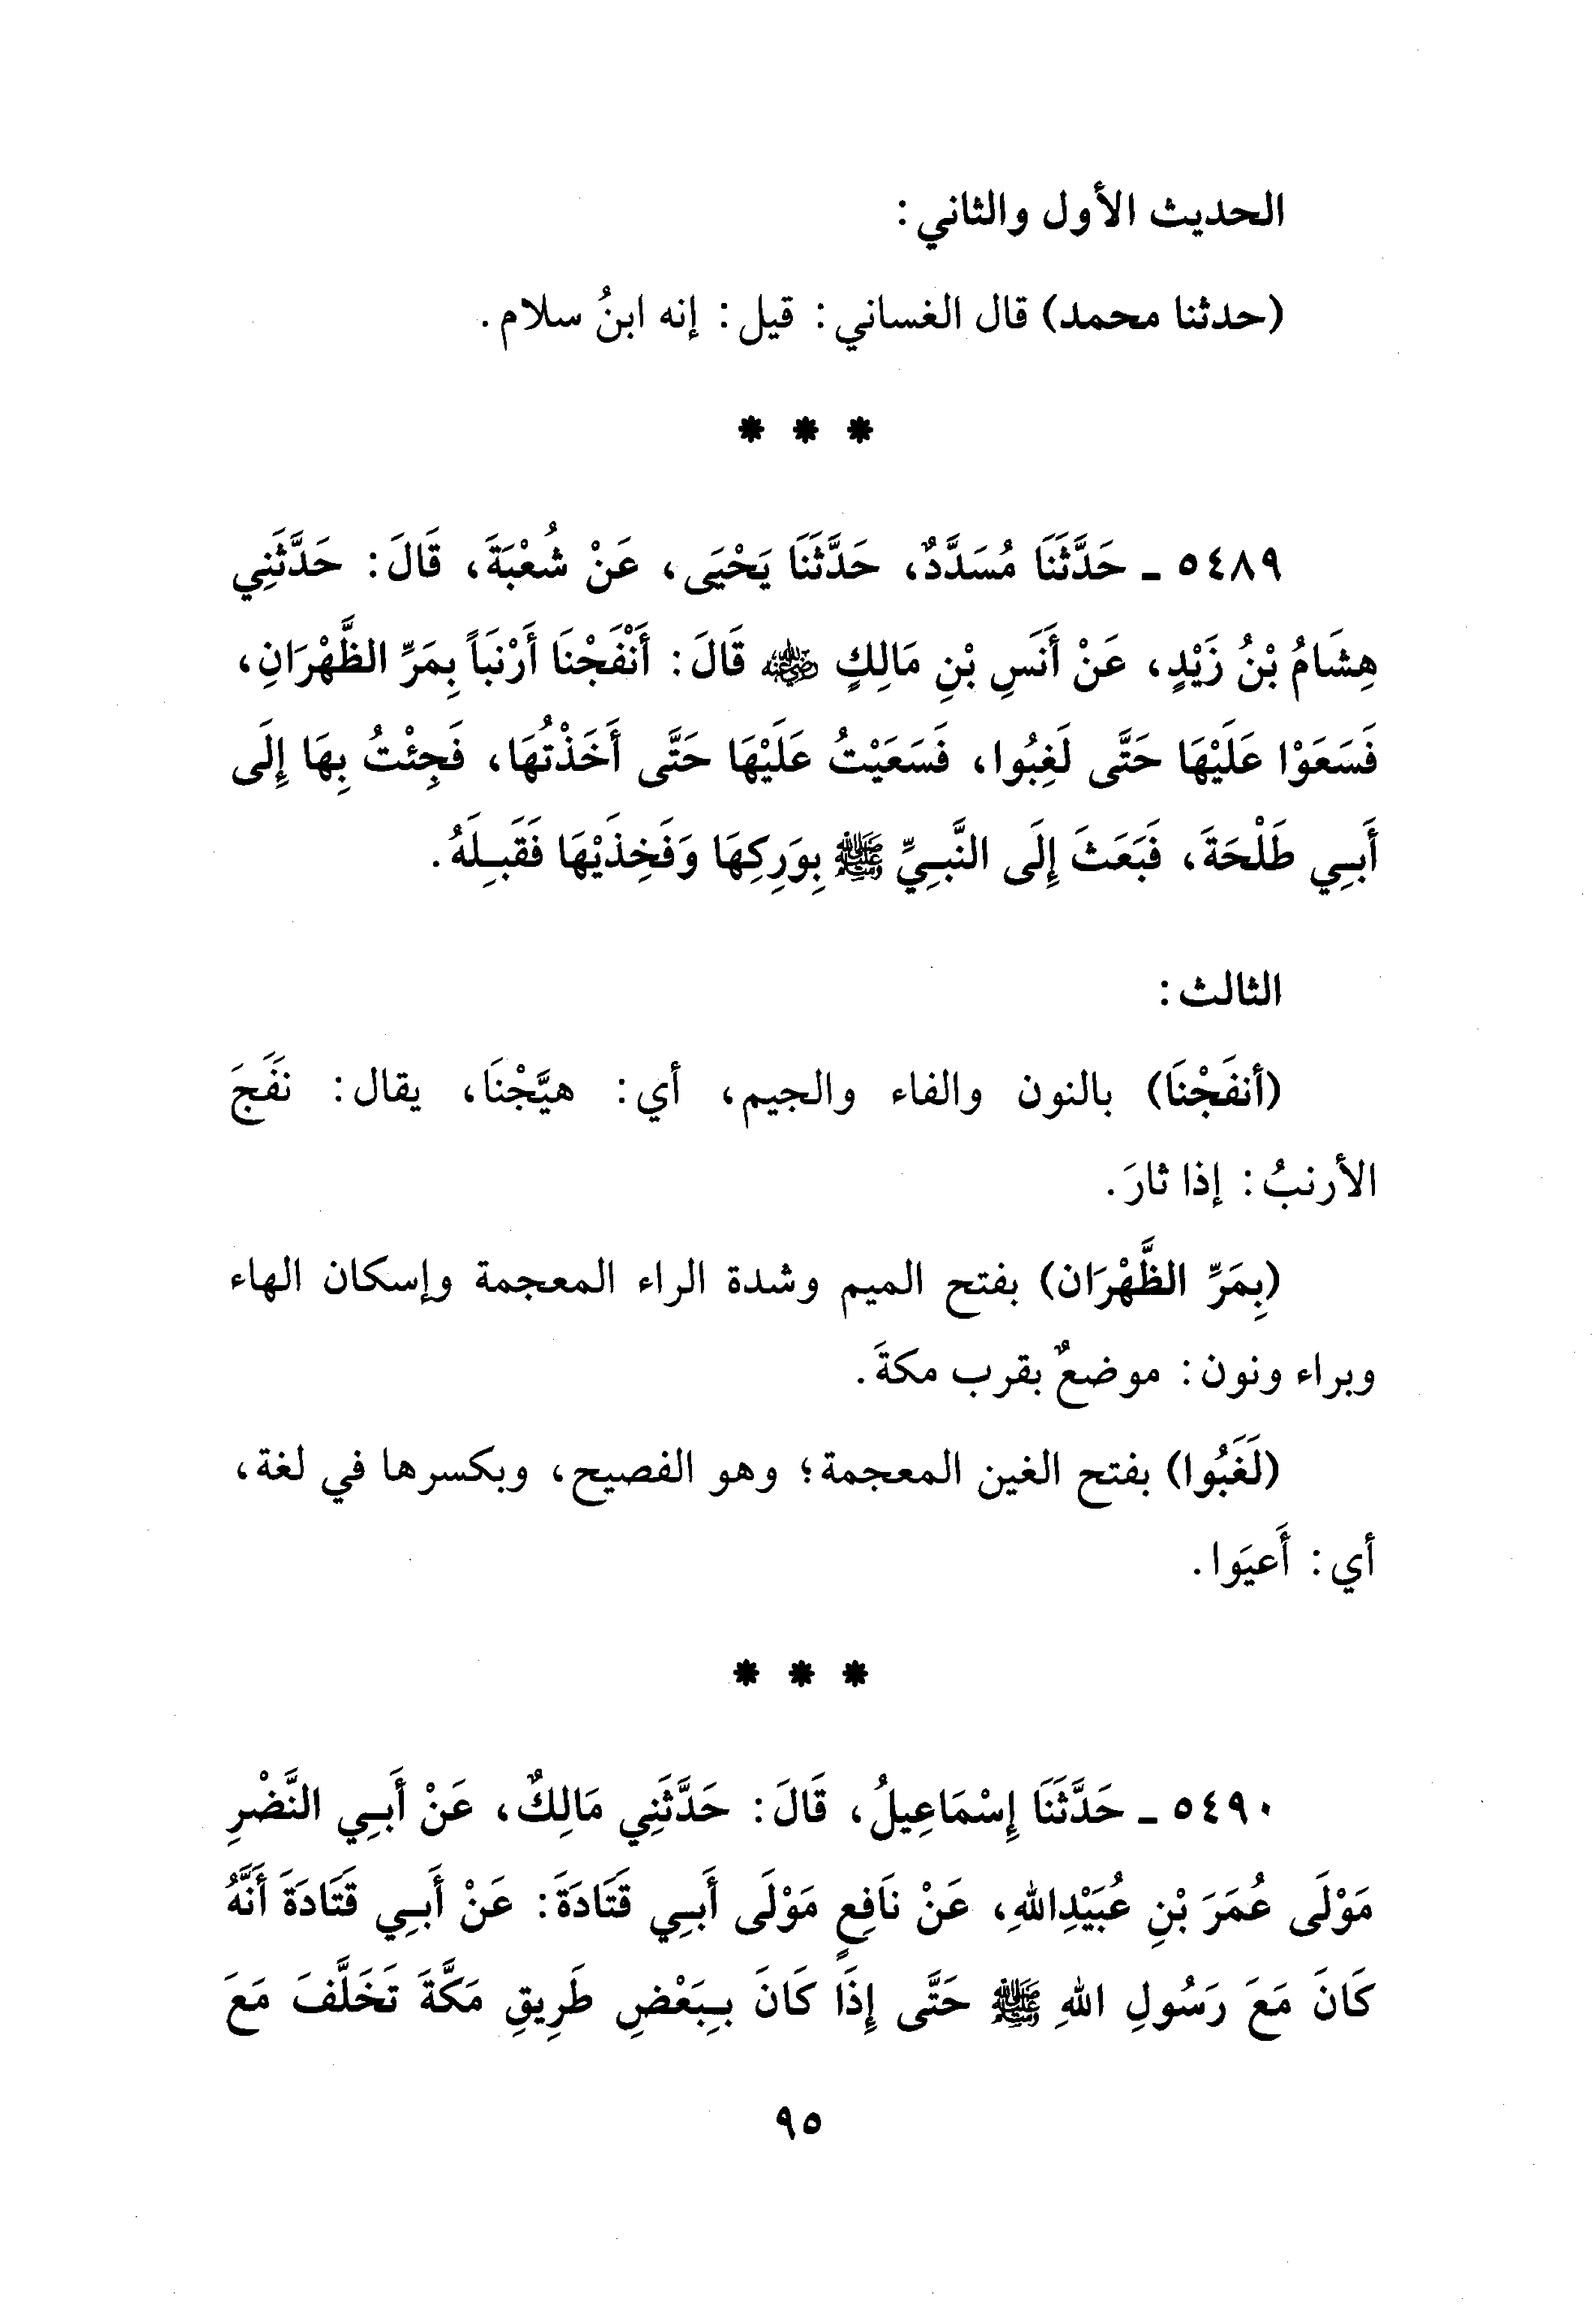 الحديث الأول والثاني:
(حدثنا محمد) قال الغساني: قيل: إنه ابنُ سلام.
* * *
٥٤٨٩ ـ حَدَّثَنَا مُسَدَّدٌ، حَدَّثَنَا يَحْيَى، عَنْ شُعْبَةَ، قَالَ: حَدَّثَنِي
هِشَامُ بْنُ زَيْدٍ، عَنْ أَنَسِ بْنِ مَالِكٍ رضي الله عنه قَالَ: أَنْفَجْنَا أَرْنَباً بِمَرِّ الظَّهْرَانِ،
فَسَعَوْا عَلَيْهَا حَتَّى لَغِبُوا، فَسَعَيْتُ عَلَيْهَا حَتَّى أَخَذْتُهَا، فَجِئْتُ بِهَا إِلَى
أَبِي طَلْحَةَ، فَبَعَثَ إِلَى النَّبِيِّ ﷺ بِوَرِكِهَا وَفَخِذَيْهَا فَقَبِلَهُ.
الثالث:
(أنفَجْنَا) بالنون والفاء والجيم، أي: هيَّجْنَا، يقال: نفَجَ
الأرنبُ: إذا ثارَ.
(بِمَرِّ الظَّهْرَان) بفتح الميم وشدة الراء المعجمة وإسكان الهاء
وبراء ونون: موضعٌ بقرب مكةَ.
(لَغَبُوا) بفتح الغين المعجمة؛ وهو الفصيح، وبكسرها في لغة،
أي: أَعيَوا.
* * *
٥٤٩٠ ـ حَدَّثَنَا إِسْمَاعِيلُ، قَالَ: حَدَّثَنِي مَالِكٌ، عَنْ أَبِي النَّضْرِ
مَوْلَى عُمَرَ بْنِ عُبَيْدِاللهِ، عَنْ نَافِعٍ مَوْلَى أَبِي قَتَادَةَ: عَنْ أَبِي قَتَادَةَ أَنَّهُ
كَانَ مَعَ رَسُولِ اللهِ ﷺ حَتَّى إِذَا كَانَ بِبَعْضِ طَرِيقِ مَكَّةَ تَخَلَّفَ مَعَ
٩٥